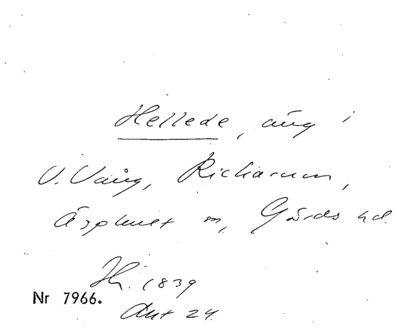 Hellede, äng i
V. Vång, Richarum,
Äsphult sn, Gärds hd.
Hs. 1839
Nr 7966.
Akt 24.